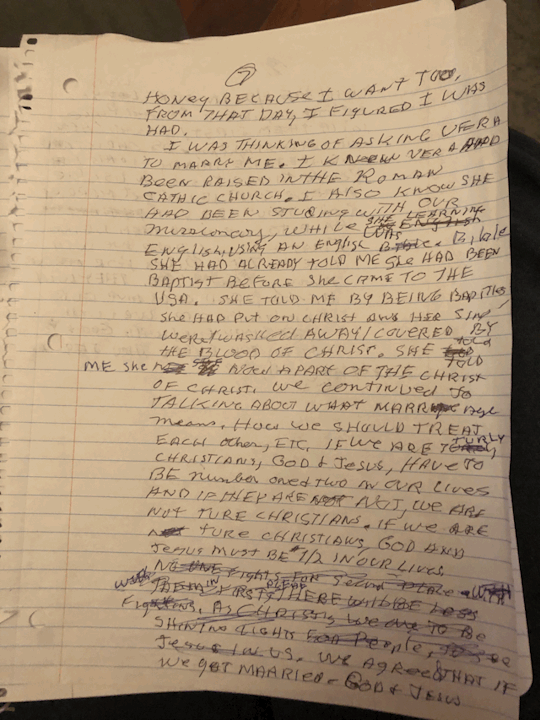 7
HONEY BECAUSE I WANT TOO.
FROM THAT DAY, I FIGURED I WAS
HAD.
I WAS THINKING OF ASKING VERA
TO MARRY ME. I KNEW VERA HAD
BEEN RAISED IN THE ROMAN
CATHIC CHURCH. I ALSO KNOW SHE
HAD BEEN STUDING WITH OUR
MISSIONARY, WHILE SHE LEARNING
WAS
ENGLISH, USING AN ENGLISH Bible.
SHE HAD ALREADY TOLD ME She HAD BEEN
BAPTIST BEFORE She CAME TO THE
USA. SHE TOLD ME BY BEING BAPTIES
She HAD PUT ON CHRIST AND HER SINS
WERE WASHED AWAY/COVERED BY
THE BLOOD OF CHRIST. SHE told
TOLD
ME She NOW APART OF THE CHRIST
OF CHRIST. WE CONTINUED TO
TALKING ABOUT WHAT MARRIAGE
MEANS. HOW WE SHOULD TREAT
EACH OTHER, ETC. IF WE ARE TURLY,
CHRISTIANS, GOD & JESUS, HAVE TO
BE NUMBER ONE & TWO IN OUR LIVES
AND IF THEY ARE NOT, WE ARE
NOT TURE CHRISTIANS. IF WE ARE
TURE CHRISTIANS, GOD AND
JESUS MUST BE #1/2 IN OUR LIVES
NO ONE FIGHTS FOR PLACE WITH
IN
THEM FIRST, THERE WILL BE LESS
FIGHTING. AS CHRISTIS WE ARE TO BE
SHINING LIGHTS FOR PEOPLE, TO SEE
JESUS IN US. WE AGREED THAT IF
WE GOT MARRIED - GOD & JESUS